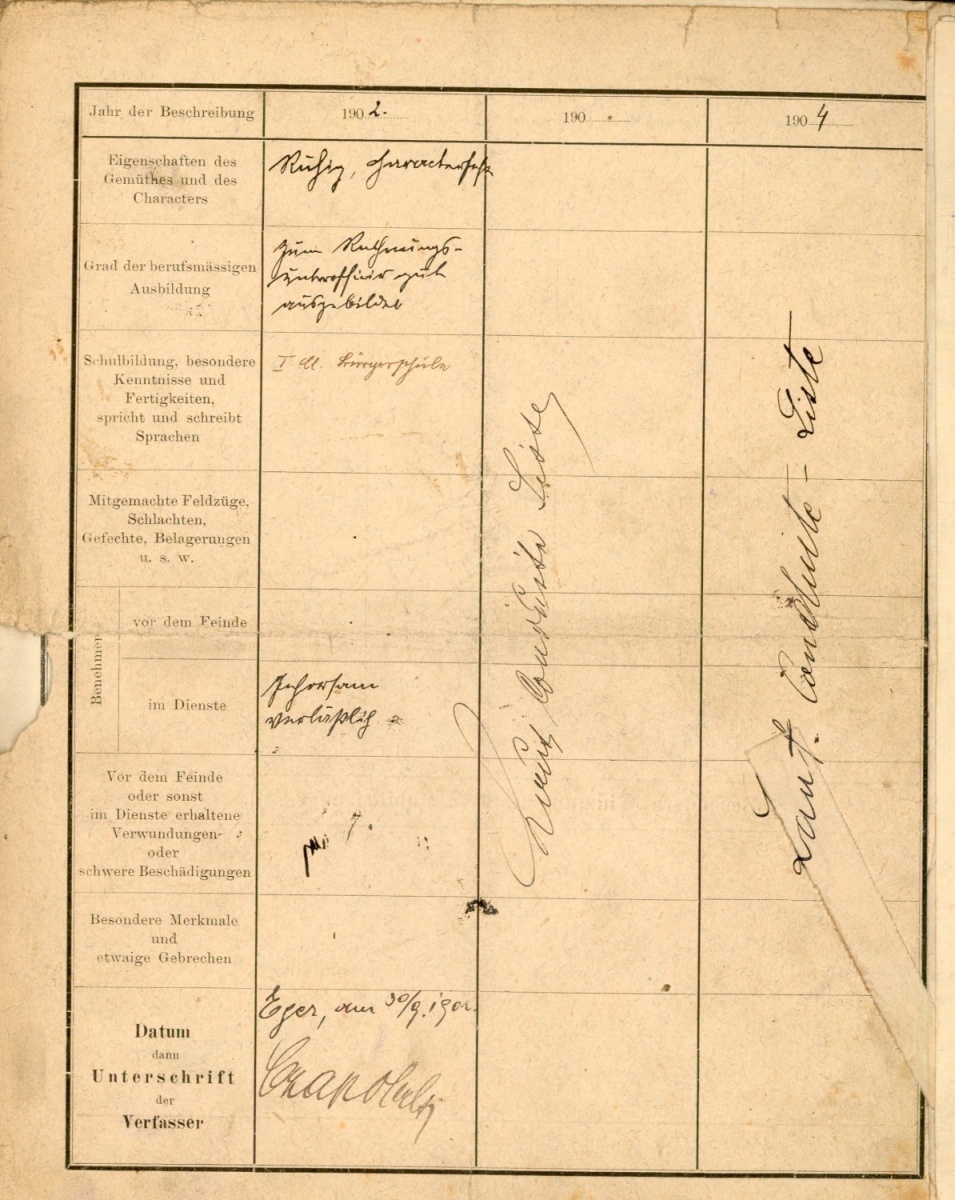 Jahr der Beschreibung
1902.
190
1904
Eigenschaften des
Gemüthes und des
Characters
Ruhig, characterfest
Grad der berufsmässigen
Ausbildung
zum Rechnungs-
unterofficier gut
ausgebildet
Schulbildung, besondere
Kenntnisse und
Fertigkeiten,
spricht und schreibt
Sprachen
I Cl. Bürgerschule
Mitgemachte Feldzüge,
Schlachten,
Gefechte, Belagerungen
u. s. w.
Benehmen
vor dem Feinde
im Dienste
Gehorsam
verläßlich
Vor dem Feinde
oder sonst
im Dienste erhaltene
Verwundungen-
oder
schwere Beschädigungen
Besondere Merkmale
und
etwaige Gebrechen
Datum
dann
Unterschrift
der
Verfasser
Eger, am 30/9. 1902.
Liste
Laut Conduite - Liste